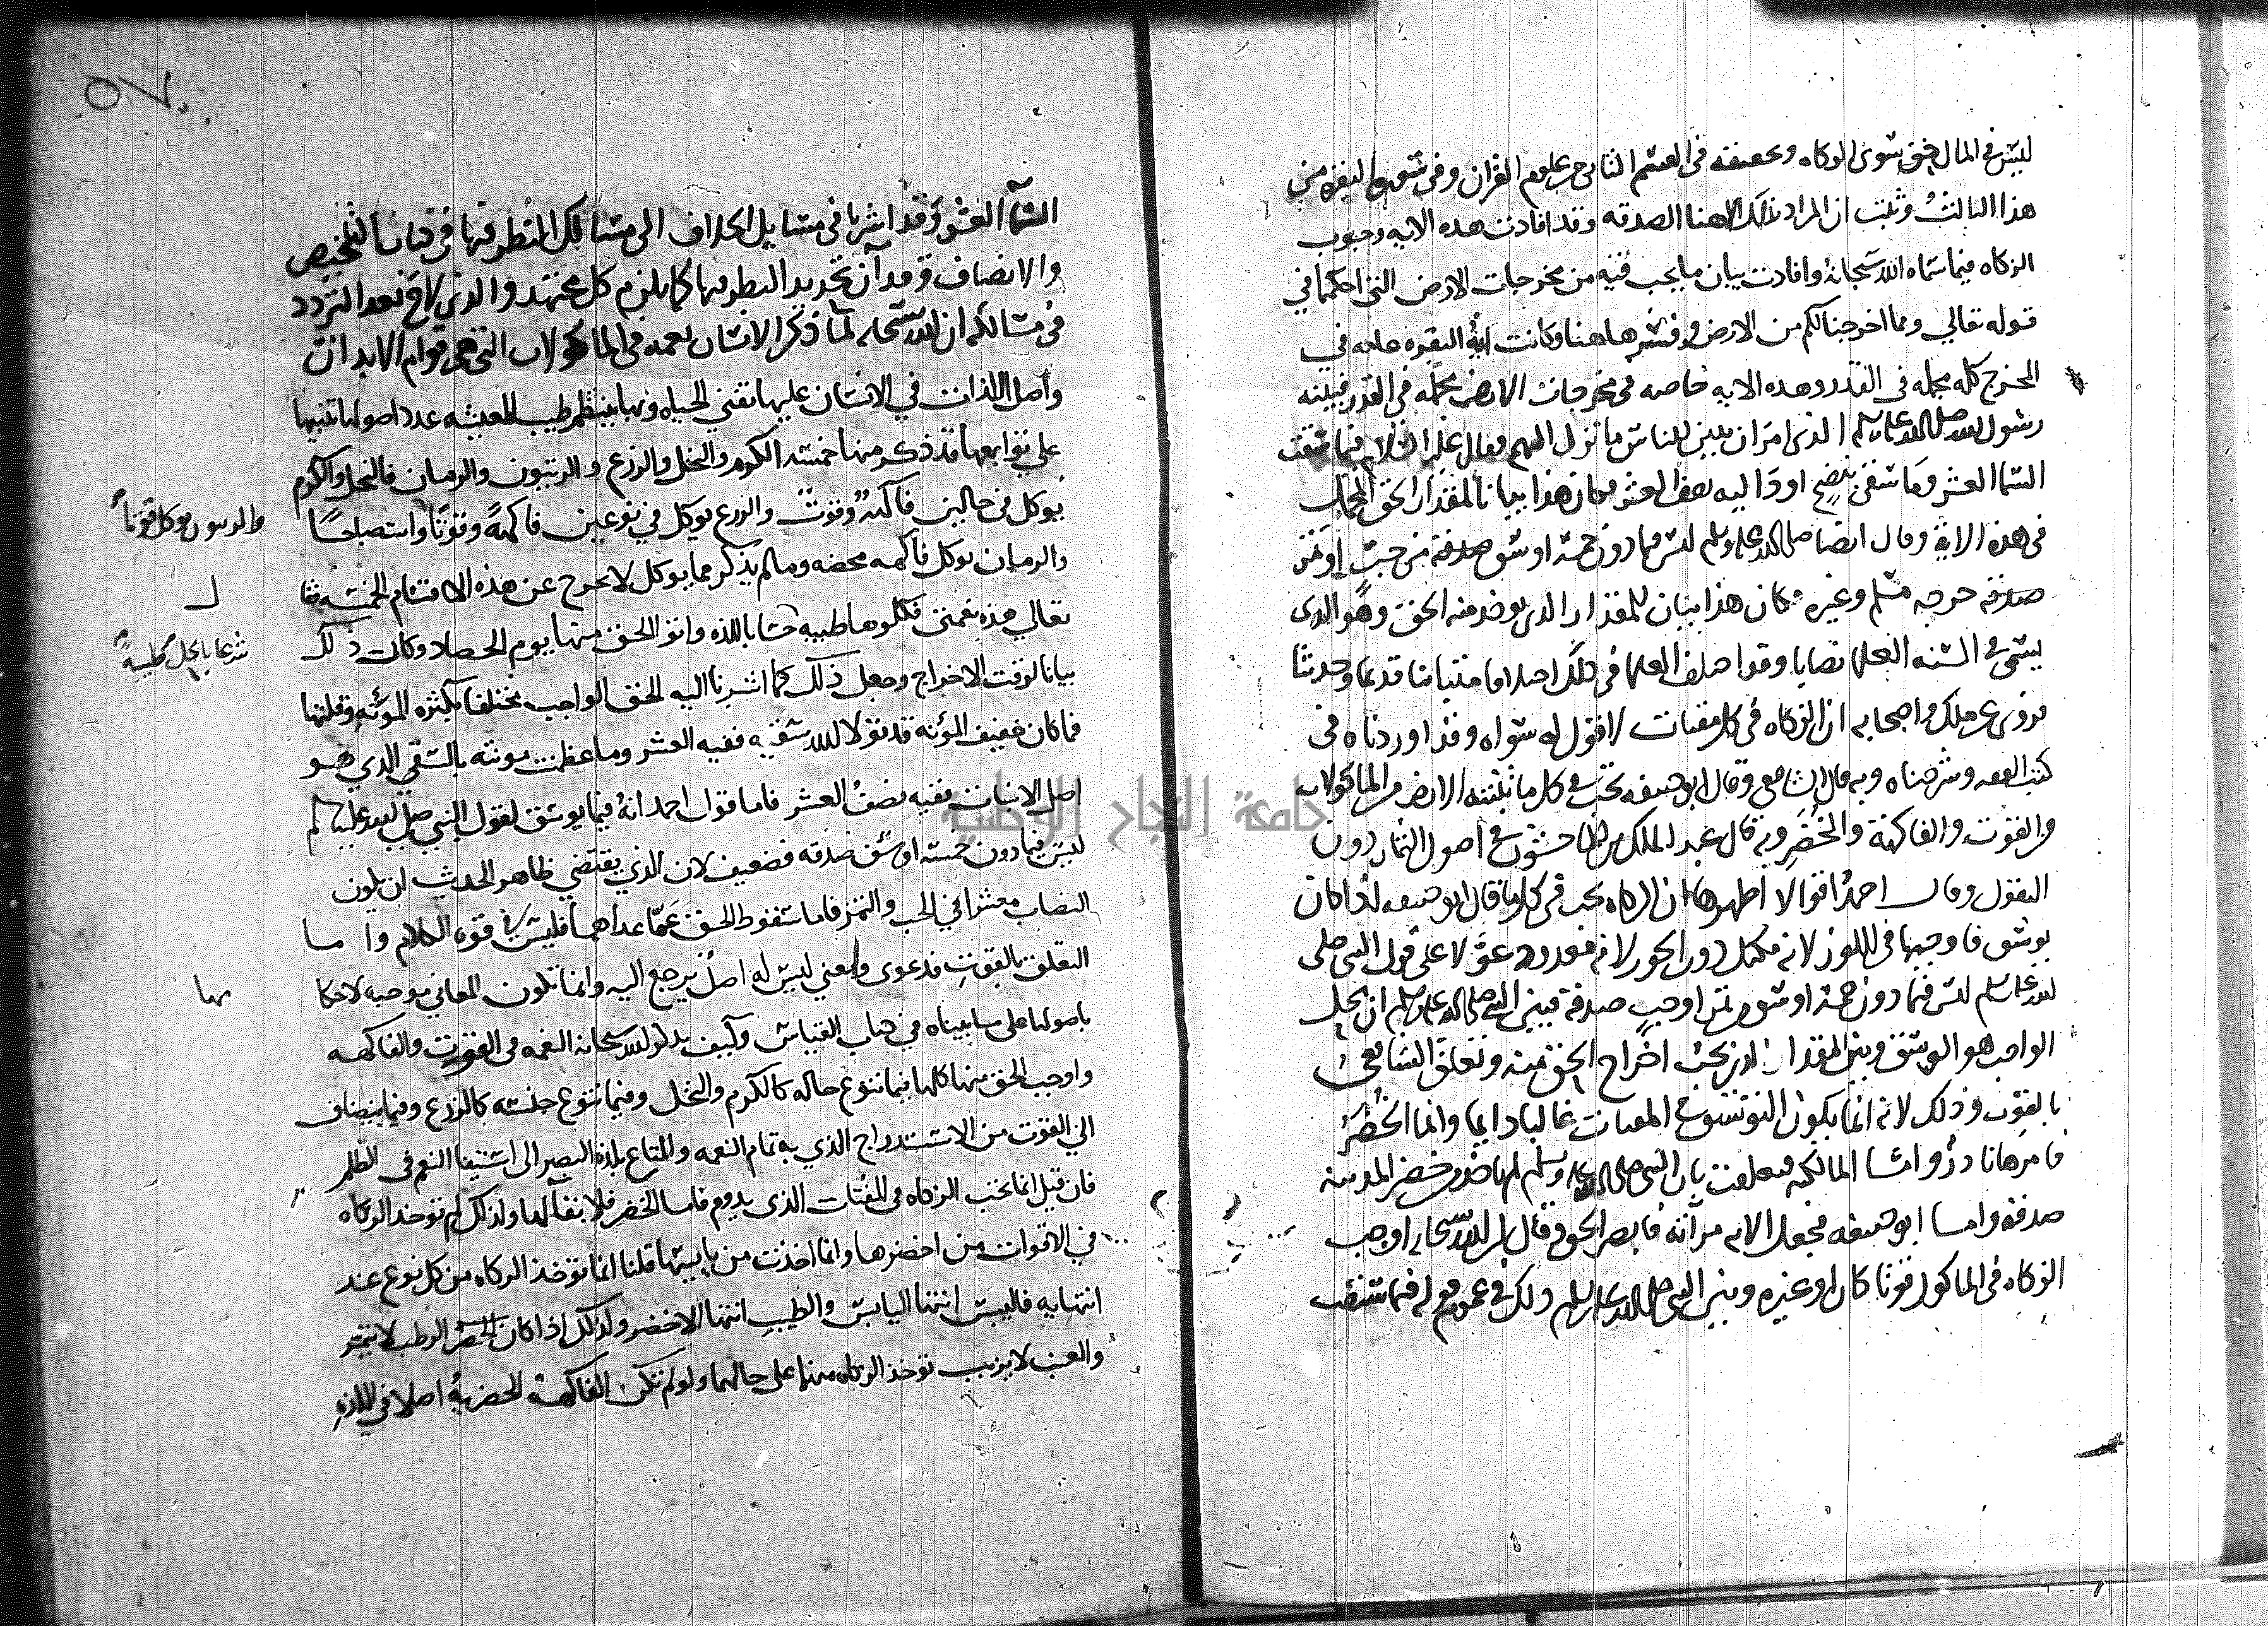 ليس في المال حق سوى الزكاه وتحقيقه في القسم الثاني من علوم القران وفي سوره البقره من
هذا الثالث وثبت ان المراد بذلك هاهنا الصدقه وقد افادت هذه الايه وجوب
الزكاه فيما سماه الله سبحانه وافادت بيان ما يجب فيه من مخرجات الارض التي اجملها في
قوله تعالي ومما اخرجنا لكم من الارض وفسرها هاهنا وكانت اية البقره عامه في
المخرج كله مجمله في القدر وهذه الايه خاصه في مخرجات الارض مجمله في القدر فبينه
رسول الله صلى الله عليه وسلم الذي امر ان يبين للناس ما نزل اليهم فقال عليه السلام فيما سقت
السما العشر وما سقي بنضح او داليه نصف العشر فكان هذا بيانا لمقدار الحق المجمل
في هذه الاية وقال ايضا صلى الله عليه وسلم ليس فيما دون خمسة اوسق صدقة من حب او تمر
صدقة خرجه مسلم وغيره فكان هذا بيان للمقدار الذي يوخذ منه الحق وهو الذي
يسمى في السنة العلما نصابا وقد اختلف العلما في ذلك اختلافا متباينا قديما وحديثا
فروي عن ملك واصحابه ان الزكاه في كل مقتات لا قول له سواه وقد اوردناه في
كتب الفقه وشرحناه وبه قال الشافعي وقال ابو حنيفه تجب في كل ما تنبته الارض من الماكولات
من القوت والفاكهة والخضر وبه قال عبد الملك بن الماجشون في اصول الثمار دون
البقول وقال احمد اقوالا اظهرها ان الزكاه تجب في كل ما قال ابو حنيفه اذا كان
يوسق فاوجبها في اللوز لانه مكيل دون الجوز لانه معدود عول على قول النبي صلى
الله عليه وسلم ليس فيما دون خمسة اوسق من تمر او حب صدقة فبين النبي صلى الله عليه وسلم ان محل
الواجب هو الوسق وبين المقدار الذي يجب اخراج الحق منه وتعلق الشافعي
بالقوت وذلك لانه انما يكون النوسق في المقتات غالبا دايما وانما الخضر
فامرها نادر واما المالكيه فتعلقت بان النبي صلى الله عليه وسلم لم ياخذ من خضر المدينه
صدقة واما ابو حنيفه فجعل الايه مرآته فابصر الحق وقال ان الله سبحانه اوجب
الزكاه في الماكول قوتا كان او غيره وبين النبي صلى الله عليه وسلم ذلك في عموم قوله فيما سقت
السما العشر وقد اشرنا في مسايل الخلاف الى مسالك النظر فيها في كتاب التلخيص
والانصاف وقد آن تحديد النظر فيها كما يلزم كل مجتهد والذي لاح بعد التردد
في مسالكه ان الله سبحانه لما ذكر الانسان نعمه في الماكولات التي هي قوام الابدان
واصل اللذات في الانسان عليها تنبني الحياه وبها ينتظم طيب المعيشه عدد اصولها تنبيها
علي توابعها فذكر منها خمسه الكرم والنخل والزرع والزيتون والرمان فالنخل والكرم
يوكل في حالين فاكهة وقوت والزرع يوكل في نوعين فاكهة وقوتا واستصباحا
والزيتون يوكل قوتا
والرمان يوكل فاكهه محضه ومالم يذكر مما يوكل لا يخرج عن هذه الاقسام الخمسه فقا
ل
تعالي هذه نعمتي فكلوها طيبه حسا باللذه واتو الحق منها يوم الحصاد وكان ذلك
شرعا بالحل طيبة
بيانا لوقت الاخراج وجعل ذلك كما اشرنا اليه الحق الواجب مختلفا بكثره المؤنه وقلتها
فما كان خفيف المؤنة قد تولا الله سقيه ففيه العشر وما عظمت مونته بالسقي الذي هو
اصل الانبات ففيه نصف العشر فاما قول احمد انه فيما يوسق لقول النبي صلى الله عليه وسلم
ليس فيما دون خمسه اوسق صدقه فضعيف لان الذي يقتضي ظاهر الحديث ان يكون
النصاب معتبرا في الحب والتمر فاما سقوط الحق عما عداهما فليس في قوه الكلام واما
التعلق بالقوت فدعوى ومعني ليس له اصل يرجع اليه وانما تكون المعاني موجبه لاحكا
مها
باصولها على ما بيناه في كتاب القياس وكيف يذكر الله سبحانه النعمه في القوت والفاكهه
واوجب الحق منها كلها فيما تنوع حاله كالكرم والنخل وفيما تنوع جنسه كالزرع وفيما ينضاف
الي القوت من الاستدراج الذي به تمام النعمه والمتاع بلذة البصر الى استيفا النعم في الظلم
فان قيل انما تجب الزكاه في المقتات الذي يدوم فاما الخضر فلا بقا لها ولذلك لم توخذ الزكاه
في الاقوات من اخضرها وانما اخذت من يابسها قلنا انما توخذ الزكاه من كل نوع عند
انتهايه فاليبس انتها اليابس والطيب انتها الاخضر ولذلك اذا كان الرطب لا يتمر
والعنب لا يزبب توخذ الزكاه منها على حالهما ولو لم تكن الفاكهة الخضرية اصلا في اللذة
جامعة النجاح الوطنية